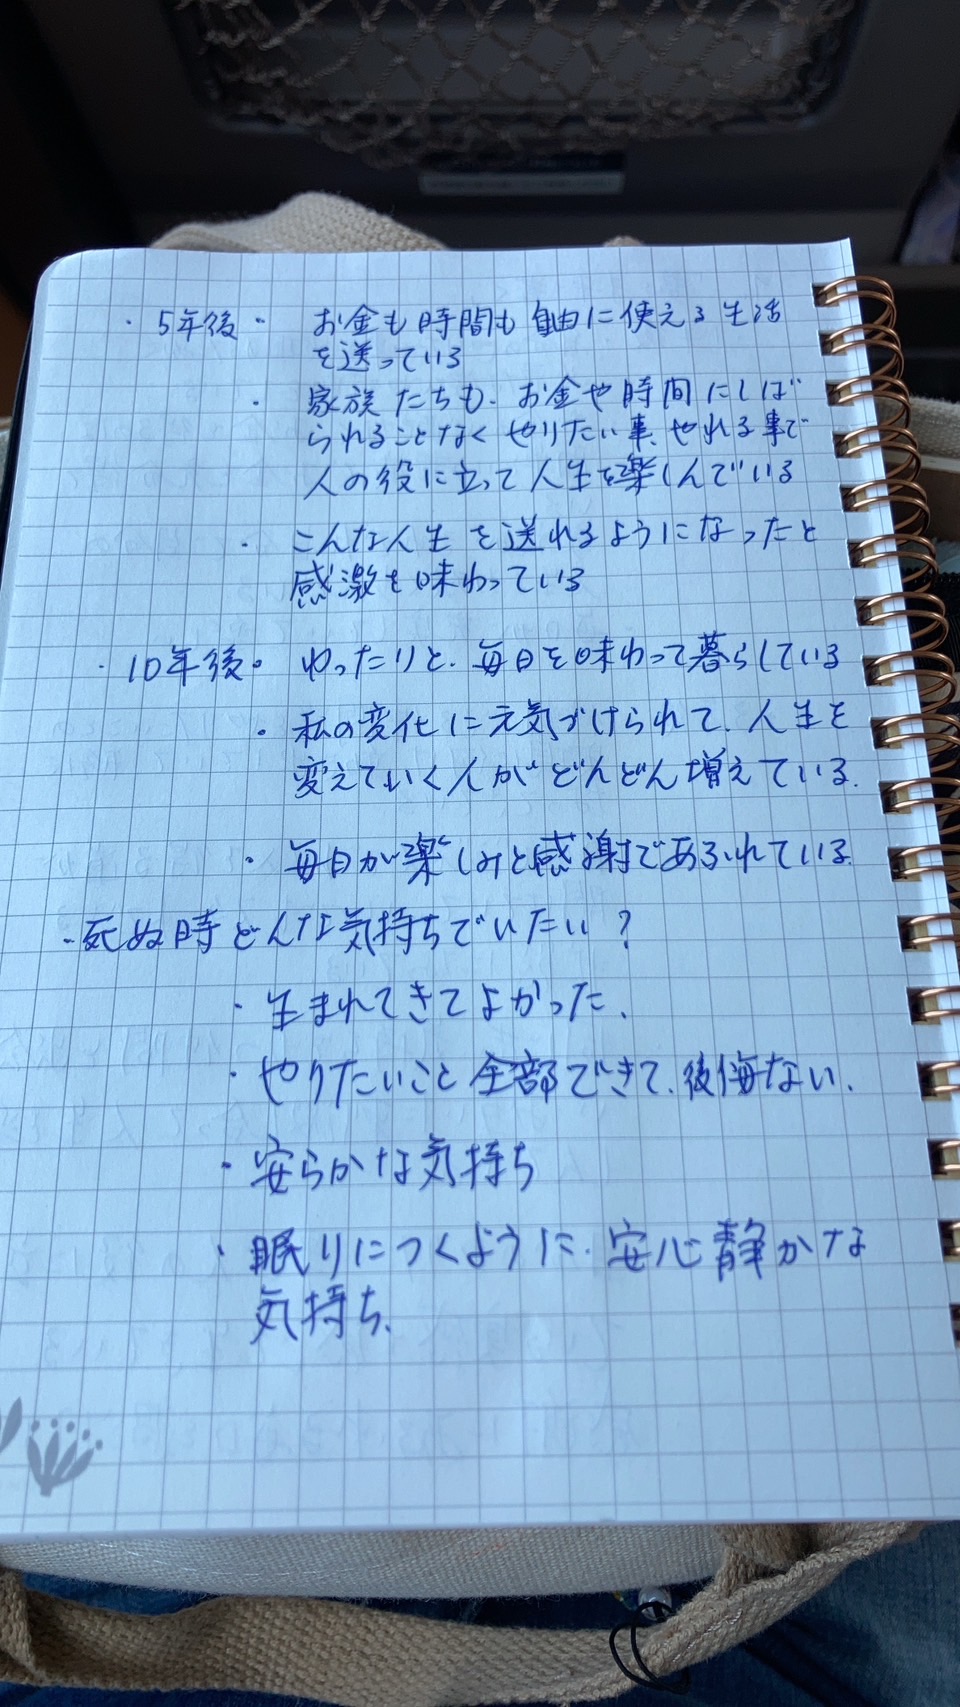 ・5年後・ お金も時間も自由に使える生活
を送っている
・ 家族たちも、お金や時間にしば
られることなくやりたい事、やれる事で
人の役に立って人生を楽しんでいる
・ こんな人生を送れるようになったと
感激を味わっている
・10年後・ ゆったりと、毎日を味わって暮らしている
・ 私の変化に元気づけられて、人生を
変えていく人がどんどん増えている。
・ 毎日が楽しみと感謝であふれている。
・死ぬ時どんな気持ちでいたい?
・生まれてきてよかった、
・やりたいこと全部できて、後悔ない、
・安らかな気持ち
・眠りにつくように、安心静かな
気持ち、